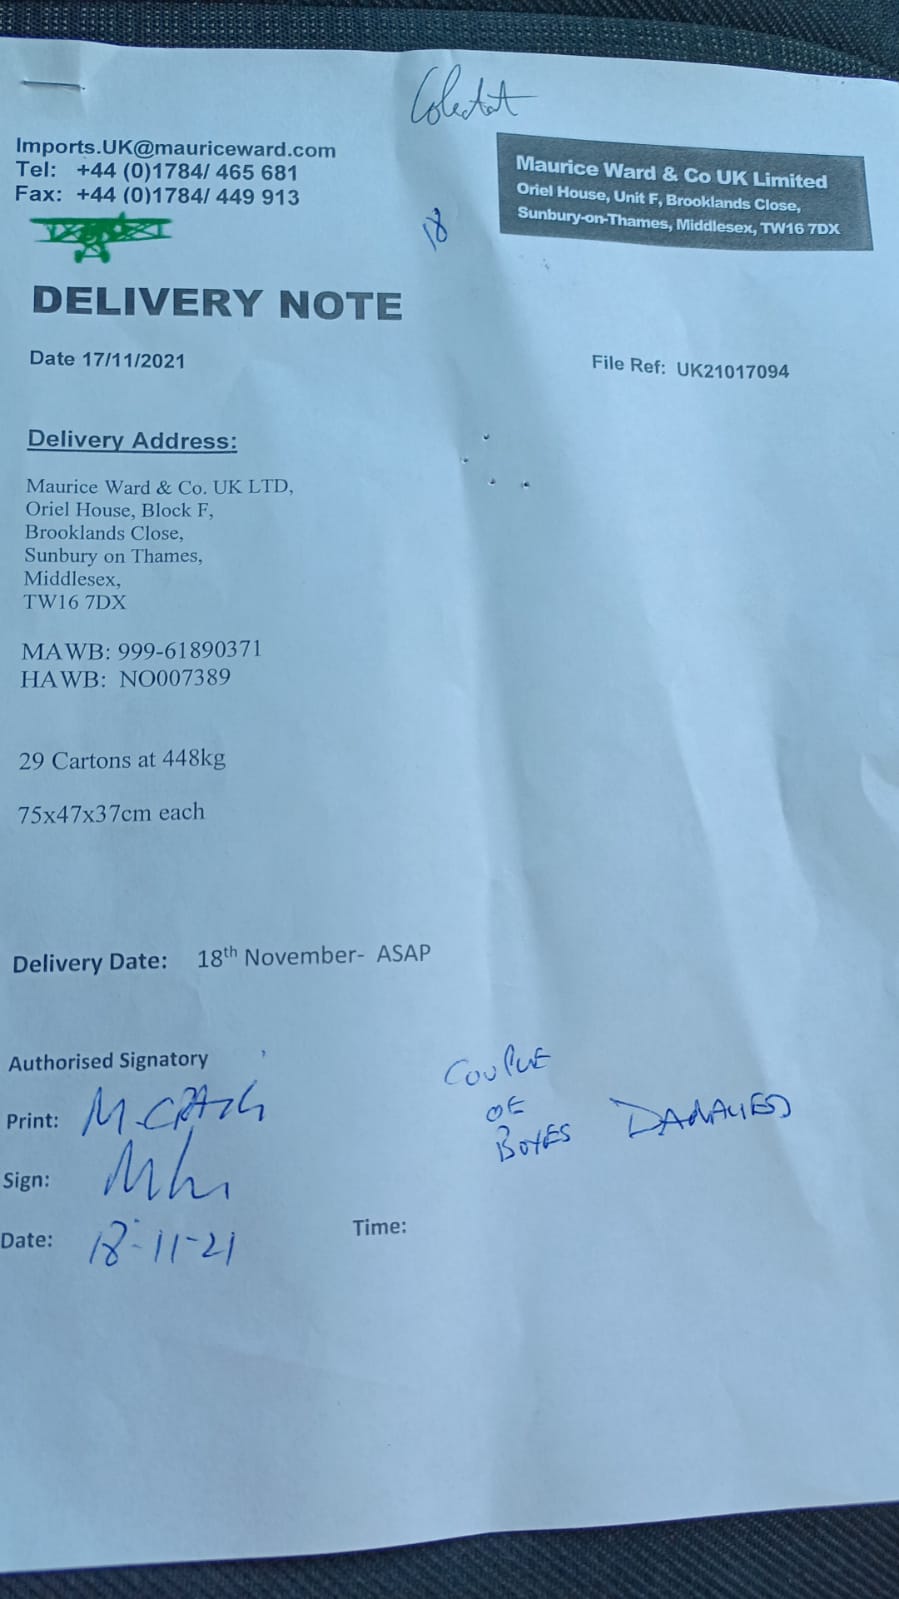 Imports.UK@mauriceward.com
Tel: +44 (0)1784/ 465 681
Fax: +44 (0)1784/ 449 913
Maurice Ward & Co UK Limited
Oriel House, Unit F, Brooklands Close,
Sunbury-on-Thames, Middlesex, TW16 7DX
18
DELIVERY NOTE
Date 17/11/2021
File Ref: UK21017094
Delivery Address:
Maurice Ward & Co. UK LTD,
Oriel House, Block F,
Brooklands Close,
Sunbury on Thames,
Middlesex,
TW16 7DX
MAWB: 999-61890371
HAWB: NO007389
29 Cartons at 448kg
75x47x37cm each
Delivery Date: 18th November- ASAP
Authorised Signatory
Print: M.
Sign:
Date: 18-11-21
Time:
COUPLE
OF
BOXES DAMAGED